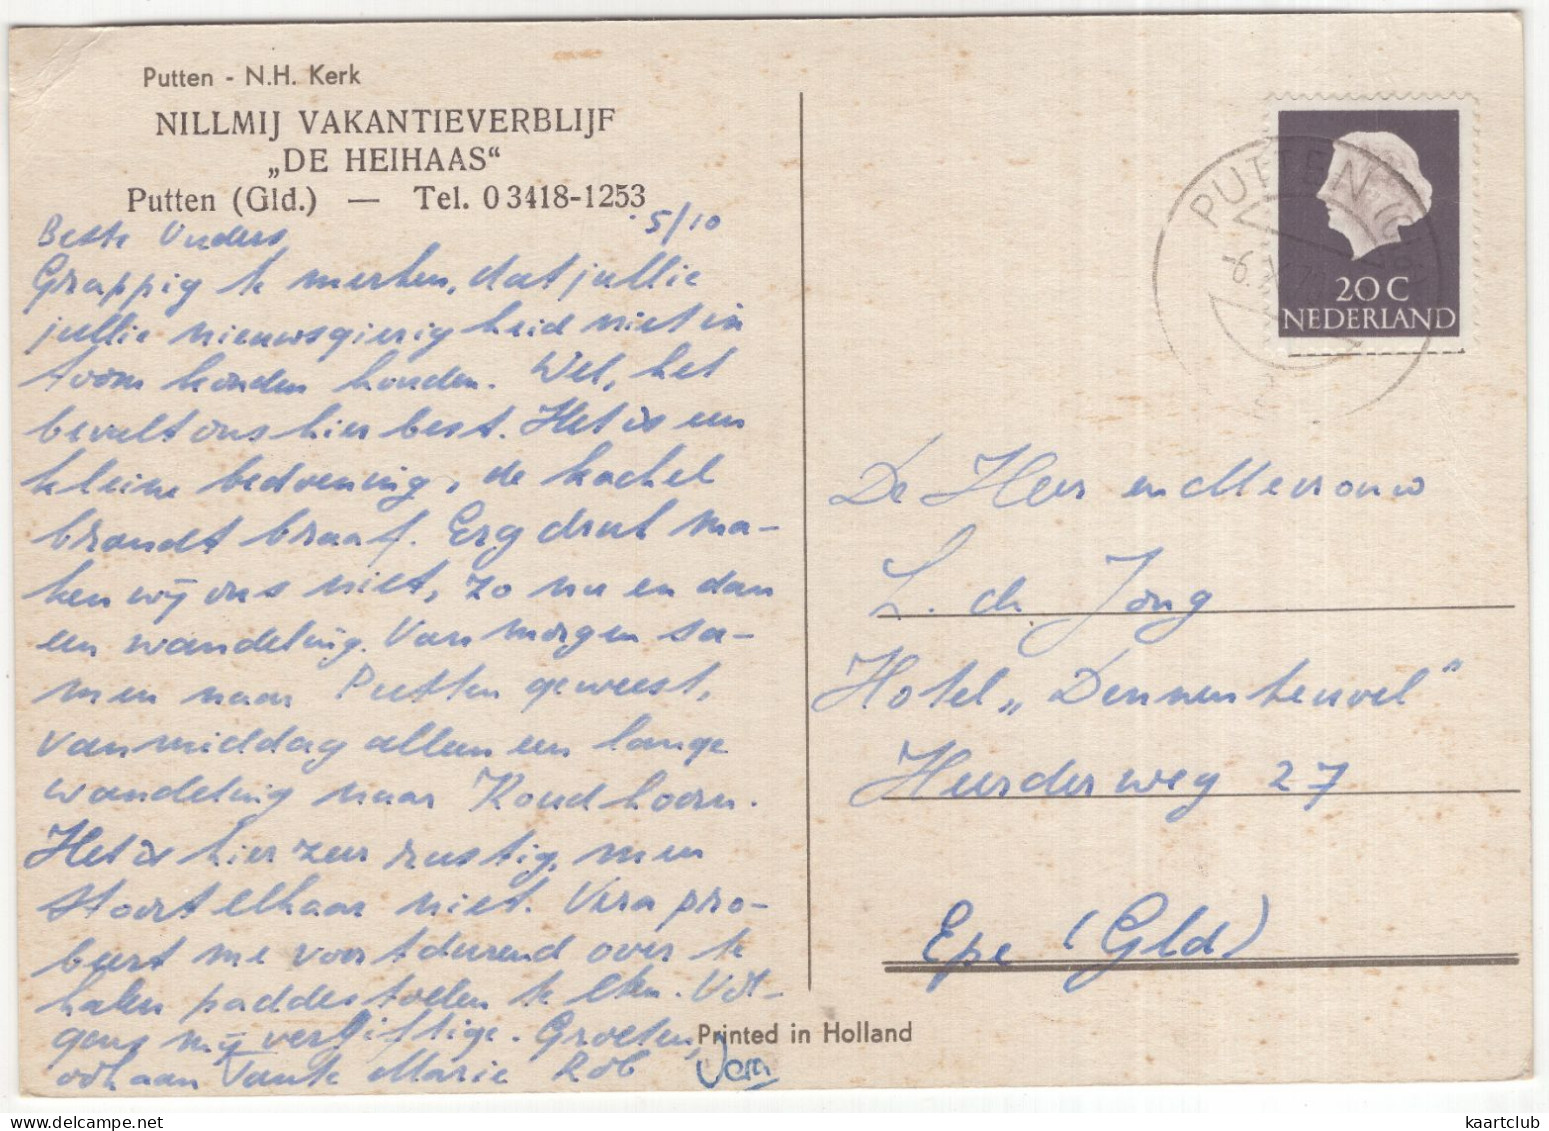 Putten - N.H. Kerk
NILLMIJ VAKANTIEVERBLIJF
„DE HEIHAAS“
Putten (Gld.) — Tel. 03418-1253
Beste Ouders, 5/10
Grappig te merken, dat jullie
jullie nieuwsgierigheid niet in
toom konden houden. Wel, het
bevalt ons hier best. Het is een
kleine bedoening, de kachel
brandt braaf. Erg druk ma-
ken wij ons niet, zo nu en dan
een wandeling. Vanmorgen sa-
men naar Putten geweest,
vanmiddag alleen een lange
wandeling naar Koudhoorn.
Het is hier zeer rustig, men
stoort elkaar niet. Vera pro-
beert me voortdurend over te
halen paddestoelen te eten. Vol-
gens mij vergiftige. Groeten,
ook aan Tante Marie Rob Vera
PUTTEN (GLD)
20 C
NEDERLAND
De Heer en Mevrouw
L. de Jong
Hotel „Dennenheuvel"
Heerderweg 27
Epe (Gld)
Printed in Holland
kaartclub